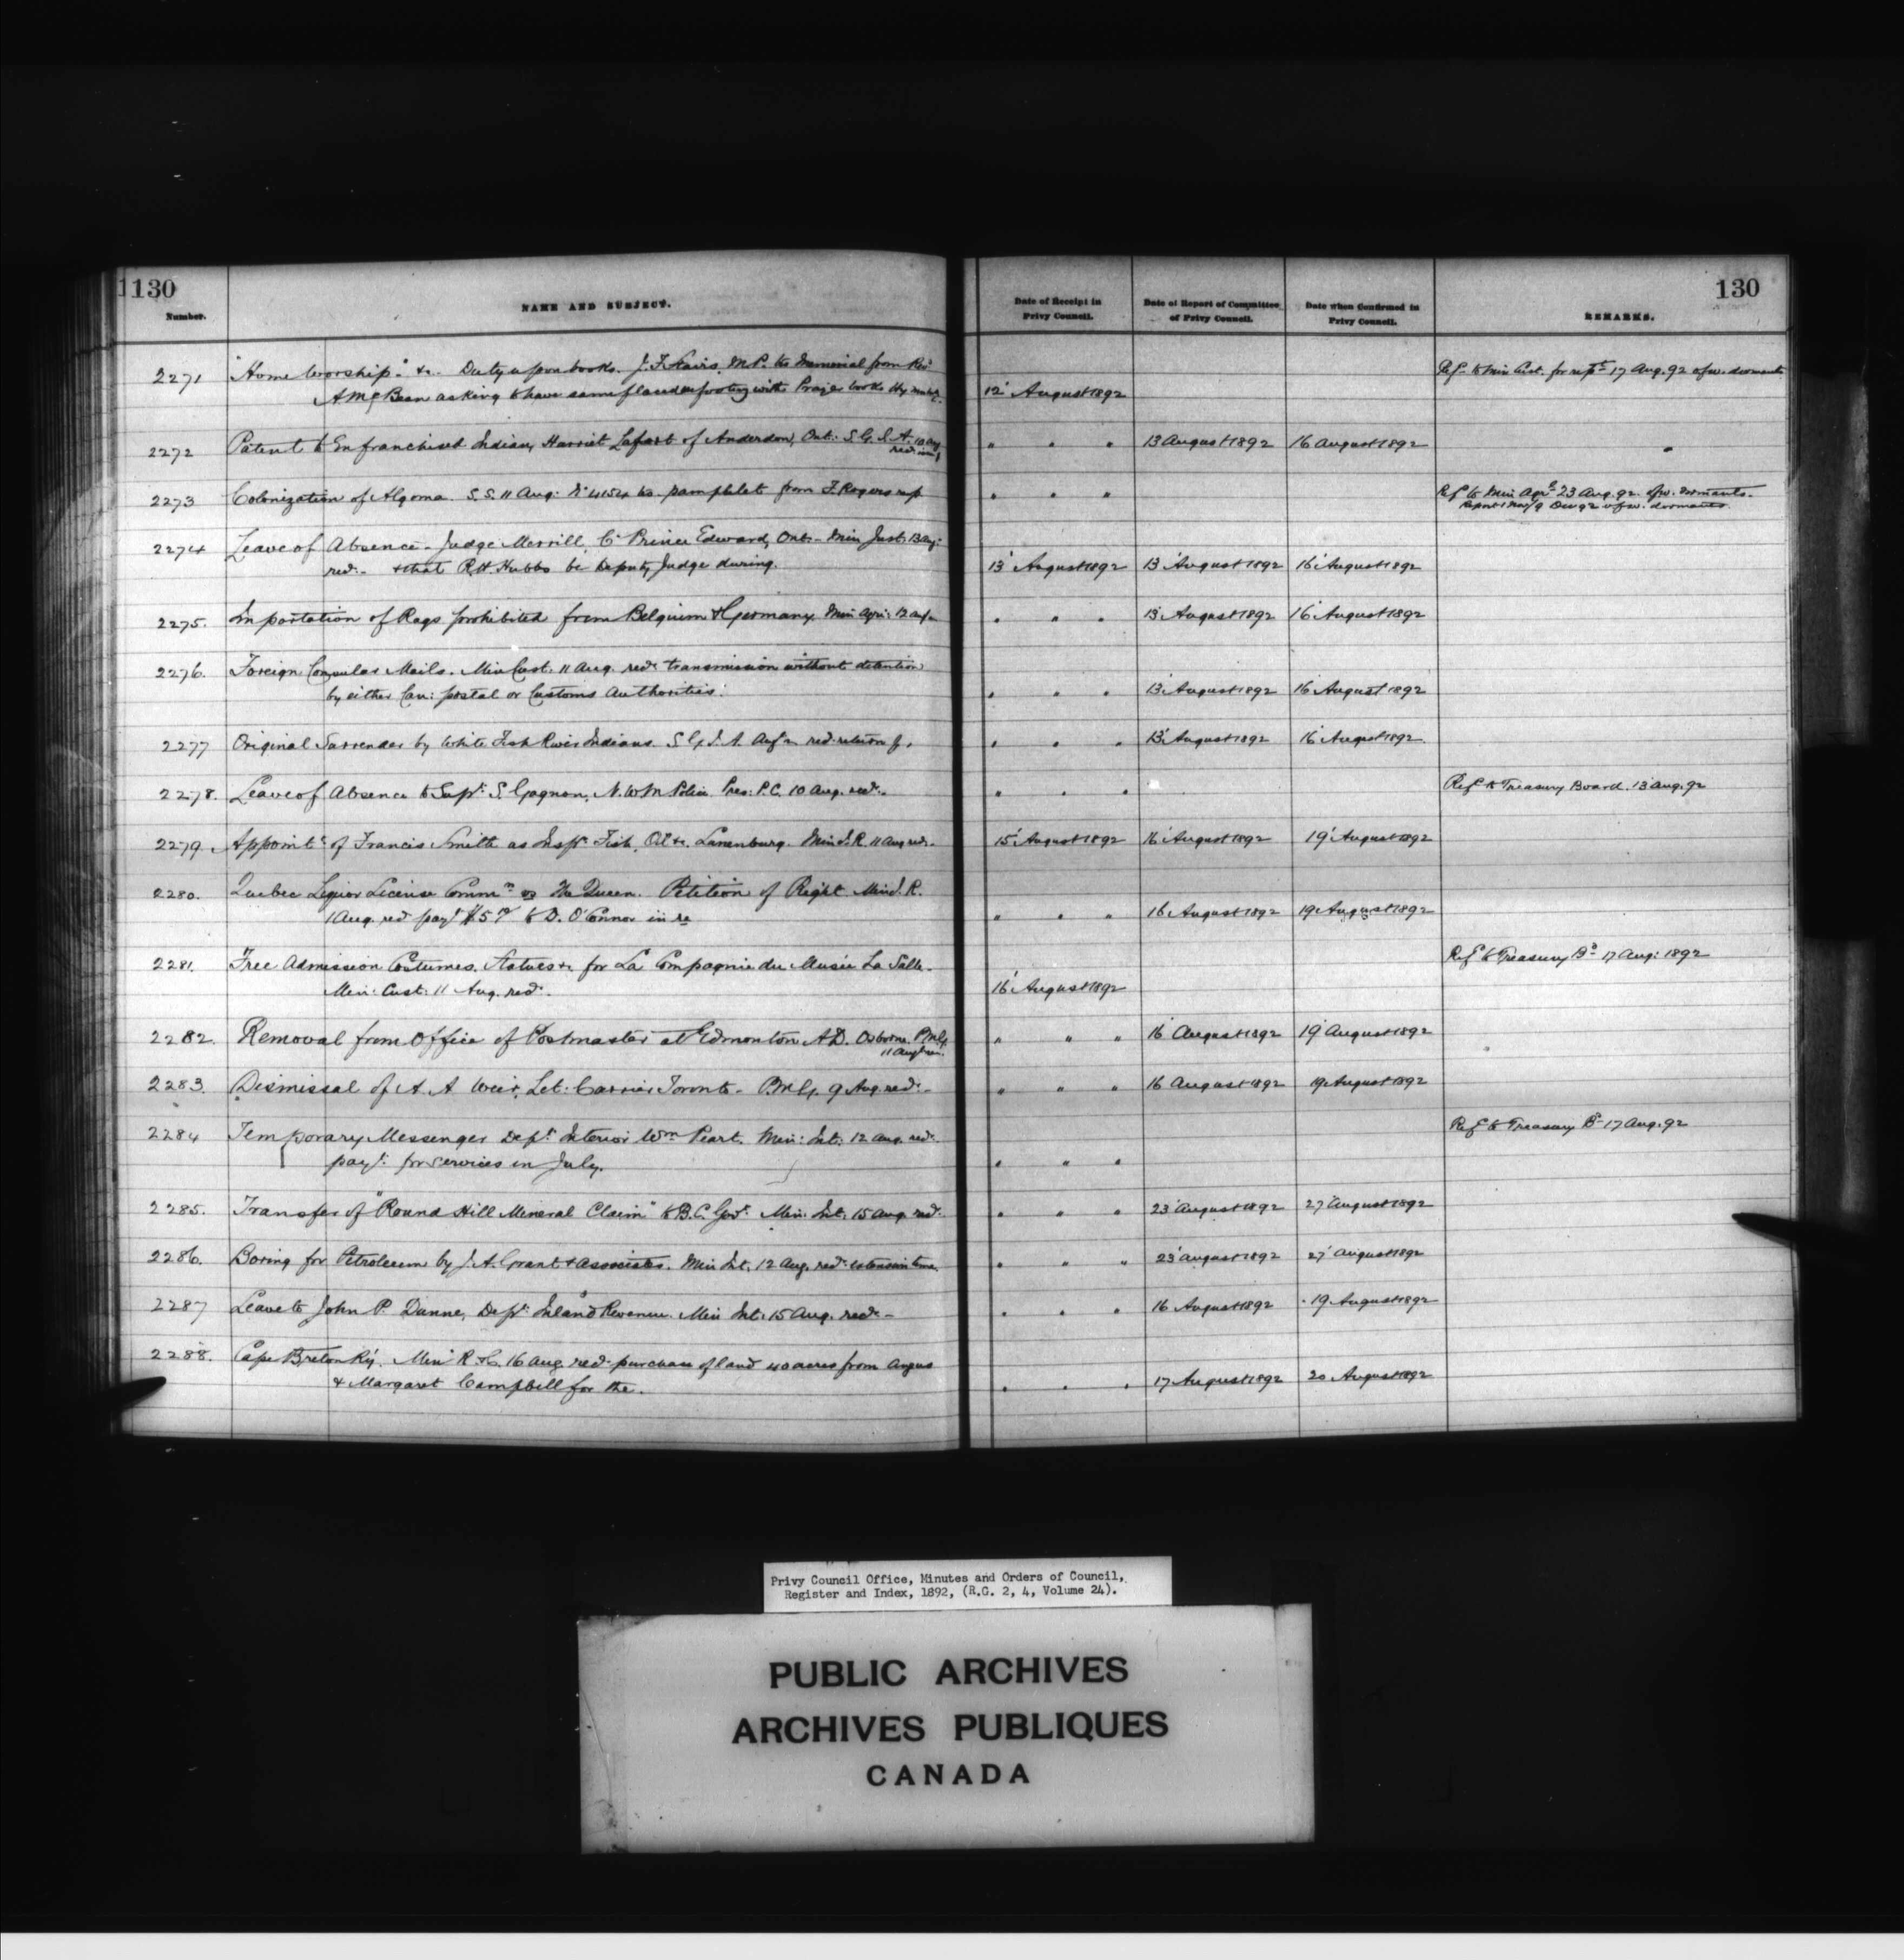 130
130
Number.
NAME AND SUBJECT.
Date of Receipt in Privy Council.
Date of Report of Committee of Privy Council.
Date when Confirmed in Privy Council.
REMARKS.
2271 "Home Worship" &c. Duty upon books. M.P. Memorial from Revd
A. McBean asking to have same placed on footing with Prayer books 12' August 1892 Ref to Min Cust. for rept 17 Aug. 92
2272 Patent to Enfranchised Indian, Harriet of Anderdon, Ont: S.G.I.A. 10 Aug " " " 13 August 1892 16 August 1892
2273 Colonization of Algoma. S.S. 11 Aug: pamphlet from Rogers " " " Ref to Min Agre 23 Aug. 92.
2274 Leave of Absence - Judge Merrill, Co Prince Edward, Ont. - Min Just: 13 Aug:
recd. - & that R.H. Hubbs be Deputy Judge during. 13' August 1892 13' August 1892 16' August 1892
2275. Importation of Rags prohibited from Belgium & Germany. Min Agri: 12 Aug " " " 13' August 1892 16' August 1892
2276. Foreign Consular Mails. Min Cust: 11 Aug. recd. transmission without detention
by either Can: postal or Customs Authorities. " " " 13' August 1892 16' August 1892
2277 Original Surrender by White Fish River Indians. S.G.I.A. recd. return of. " " " 13' August 1892 16' August 1892
2278. Leave of Absence to Supt. S. Gagnon, N.W.M. Police. Pres: P.C. 10 Aug. recd. " " " Ref to Treasury Board. 13' Aug. 92
2279 Appointt. of Francis Smith as Inspr Fish, Oil &c. Lunenburg. Min I.R. 11 Aug recd. 15' August 1892 16' August 1892 19' August 1892
2280. Quebec Liquor License Commn vs The Queen. Petition of Right. Min I.R.
1 Aug. recd payt to D. O'Connor in re " " " 16 August 1892 19 August 1892
2281. Free Admission Costumes, Statues &c for La Compagnie du Musée La Salle.
Min: Cust: 11 Aug. recd. 16' August 1892 Ref to Treasury Bd 17 Aug: 1892
2282. Removal from Office of Postmaster at Edmonton A.D. Osborne. P.M.G.
11 Aug " " " 16 August 1892 19 August 1892
2283. Dismissal of A. A. Weir, Let: Carrier Toronto - P.M.G. 9 Aug. recd. " " " 16 August 1892 19 August 1892
2284 Temporary Messenger Dept Interior Wm Peart. Min: Int: 12 Aug. recd.
payt. for services in July. " " " Ref to Treasury Bd 17 Aug. 92
2285. Transfer of "Round Hill Mineral Claim" to B.C. Govt. Min: Int: 15 Aug. recd. " " " 23' August 1892 27 August 1892
2286. Boring for Petroleum by J.A. Grant & Associates. Min Int. 12 Aug. recd. extension time. " " " 23' August 1892 27' August 1892
2287 Leave to John P. Dunne, Dept: Inland Revenue. Min Int: 15 Aug. recd. - " " " 16 August 1892 19 August 1892
2288. Cape Breton Ry. Min R. & C. 16 Aug. recd. purchase of land 40 acres from Angus
& Margaret Campbell for the. " " " 17 August 1892 20 August 1892
Privy Council Office, Minutes and Orders of Council,
Register and Index, 1892, (R.G. 2, 4, Volume 24).
PUBLIC ARCHIVES
ARCHIVES PUBLIQUES
CANADA